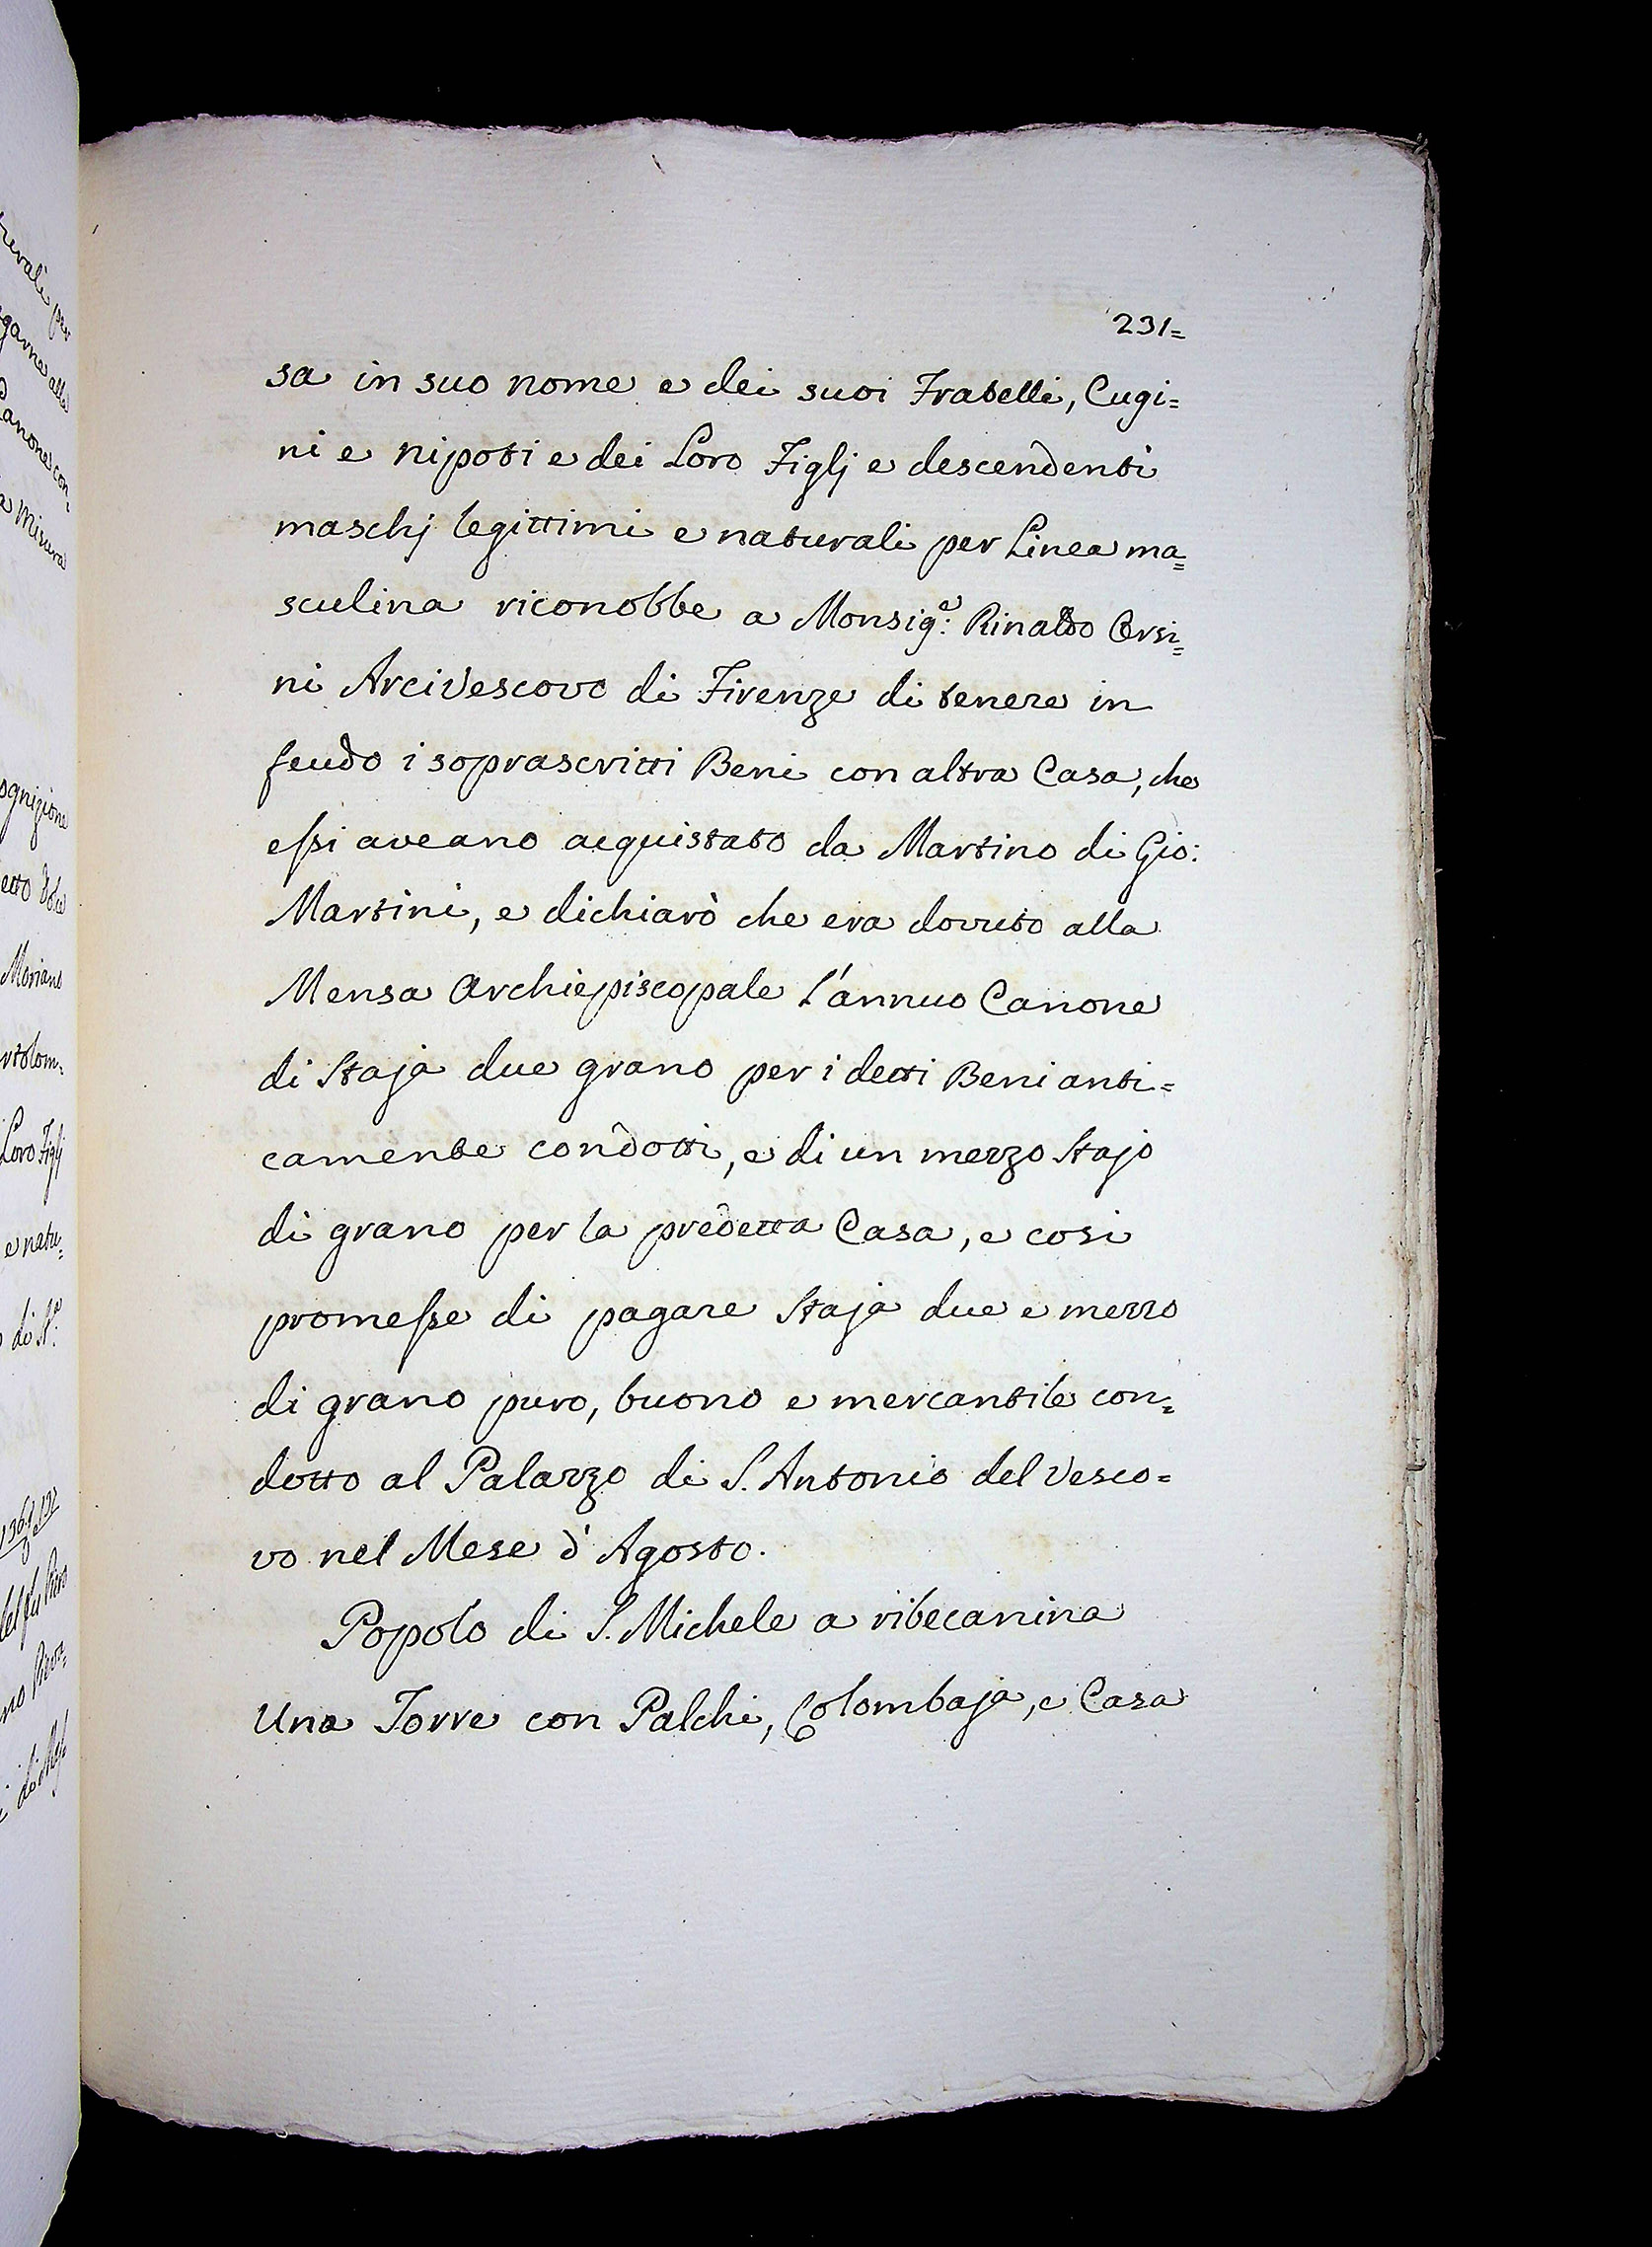 231=
sa in suo nome e dei suoi Fratelli, Cugi=
ni e nipoti e dei Loro Figlj e descendenti
maschj legittimi e naturali per Linea ma=
sculina riconobbe a Monsig.e: Rinaldo Orsi=
ni Arcivescovo di Firenze di tenere in
feudo i soprascritti Beni con altra Casa, che
eſsi aveano acquistato da Martino di Gio:
Martini, e dichiarò che era dovuto alla
Mensa Archiepiscopale l'annuo Canone
di Staja due grano per i detti Beni anti=
camente condotti, e di un mezzo Stajo
di grano per la predetta Casa, e cosi
promeſse di pagare Staja due e mezzo
di grano puro, buono e mercantile con=
dotto al Palazzo di S. Antonio del Vesco=
vo nel Mese d'Agosto.
Popolo di S. Michele a ribecanina
Una Torre con Palchi, Colombaja, e Casa
ognizione
Moriano
rtolom=
Loro Figlj
e natu=